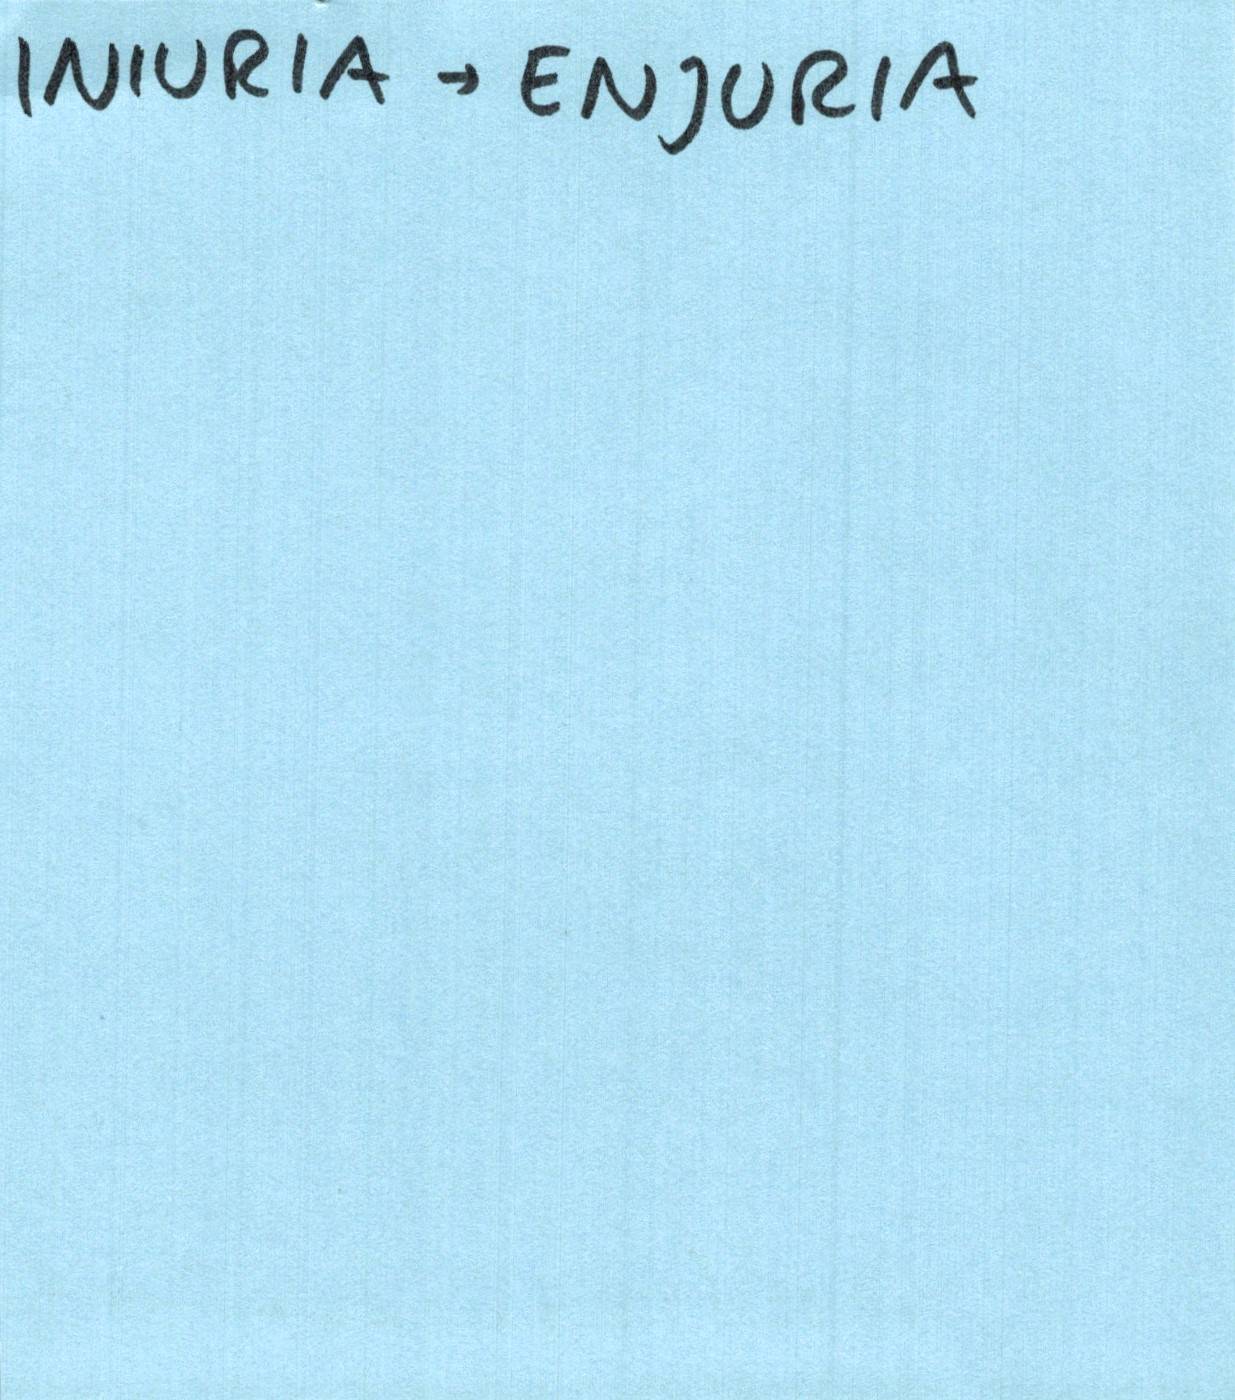 INIURIA → ENJURIA